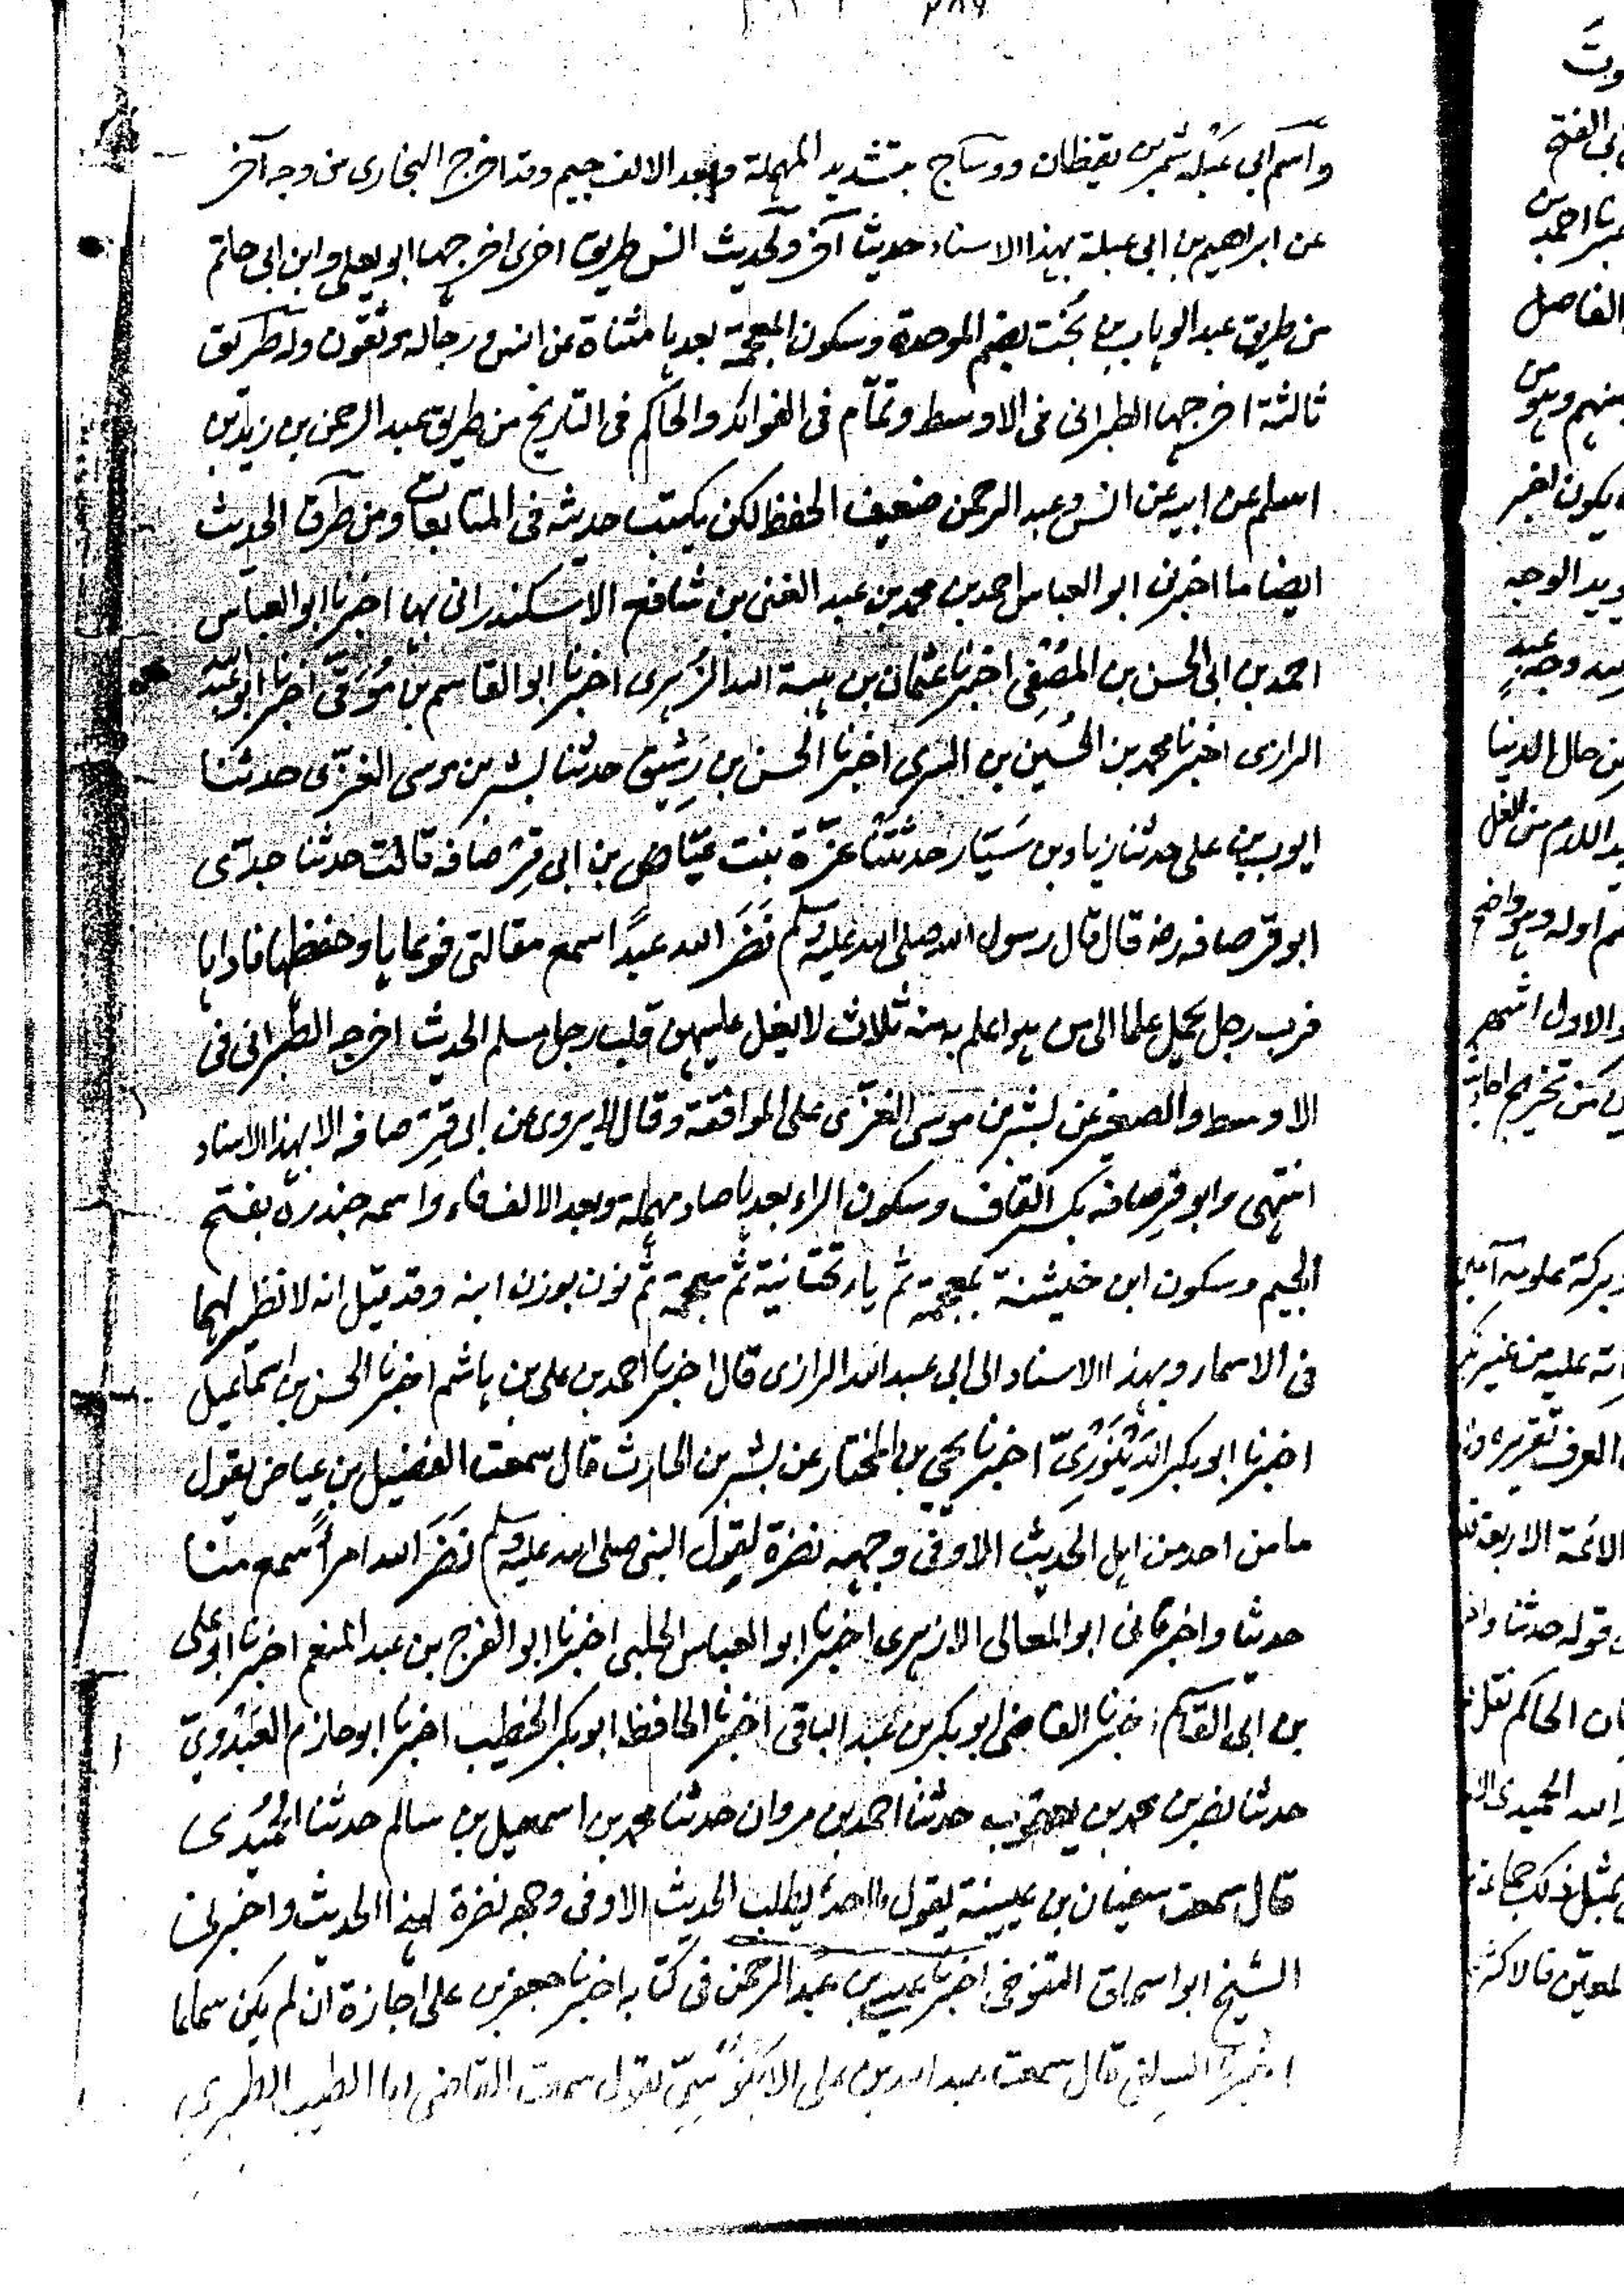 واسم ابي عبلة شمر بن يقظان ووساج بتشديد المهملة وبعد الالف جيم وقد اخرج البخارى من وجه آخر
عن ابراهيم بن ابى عبلة بهذا الاسناد حديثا آخر ولحديث انس طريق اخرى اخرجها ابو يعلى وابن ابى حاتم
من طريق عبد الوهاب بن بخت بضم الموحدة وسكون المعجمة بعدها مثناة عن انس ورجاله موثقون وله طريق
ثالثة اخرجها الطبرانى فى الاوسط وتمّام فى الفوائد والحاكم فى التاريخ من طريق عبد الرحمن بن زيد بن
اسلم عن ابيه عن انس وعبد الرحمن ضعيف الحفظ لكن يكتب حديثه فى المتابعات ومن طرق الحديث
ايضا ما اخبرنى ابو العباس احمد بن محمد بن عبد الغنى بن شافع الاسكندرانى بها اخبرنا ابو العباس
احمد بن ابى الحسن بن المصفى اخبرنا عثمان بن هبة الله الزهرى اخبرنا ابو القاسم بن مُوَقّى اخبرنا ابو عبد الله
الرازى اخبرنا محمد بن الحُسَين بن السرى اخبرنا الحسن بن رشيق حدثنا بشر بن موسى الغزّى حدثنا
ايوب بن على حدثنا زياد بن سَيّار حدثتنا عزّة بنت عيّاض بن ابى قِرْصافه قالت حدثنا جدّى
ابو قرصافه رضه قال قال رسول الله صلى الله عليه وسلم نَضَرَ الله عبدًا سمع مقالتى فوعاها وحفظها فاداها
فرب رجل يحمل علما الى من هو اعلم به منه ثلاث لا يغل عليهن قلب رجل مسلم الحديث اخرجه الطبرانى فى
الاوسط والصغير عن بشر بن موسى الغزّى على الموافقة وقال لا يروى عن ابى قِرْصافه الا بهذا الاسناد
انتهى وابو قِرصافه بكسر القاف وسكون الراء بعدها صاد مهملة وبعد الالف فاء واسمه جندرة بفتح
الجيم وسكون ابن خيشنة بمعجمة ثم ياء تحتانية ثم معجمة ثم نون بوزن ابنه وقد قيل انه لا نظير لهما
فى الاسماء وبهذا الاسناد الى ابى عبد الله الرازى قال اخبرنا احمد بن على بن هاشم اخبرنا الحسن بن اسماعيل
اخبرنا ابو بكر الدَيْنَوَرِىّ اخبرنا يحيى بن المختار عن بشر بن الحارث قال سمعت الفضيل بن عياض يقول
ما من احد من اهل الحديث الا وفى وجهه نضرة لقول النبى صلى الله عليه وسلم نَضَرَ الله امرأً سمع منا
حديثا واخبرنى ابو المعالى الازهرى اخبرنا ابو العباس الحلبى اخبرنا ابو الفرج بن عبد المنعم اخبرنا ابو على
بن ابى القاسم اخبرنا القاضى ابو بكر بن عبد الباقى اخبرنا الحافظ ابو بكر الخطيب اخبرنا ابو حازم العَبْدُوِىّ
حدثنا نضر بن محمد بن يعقوب حدثنا احمد بن مروان حدثنا محمد بن اسمعيل بن سالم حدثنا الحُمَيْدى
قال سمعت سفيان بن عيينة يقول ما احد يطلب الحديث الا وفى وجهه نضرة لهذا الحديث واخبرنى
الشيخ ابو اسحاق التنوخى اخبرنا عيسى بن عبد الرحمن فى كتابه اخبرنا جعفر بن على اجازة ان لم يكن سماعا
اخبرنا السِلفى قال سمعت عبد الله بن على الابَنُوْسِىّ يقول سمعت القاضى ابا الطيب الطبرى
وبتَ
ابى الفتح
احمد بن
الفاضل
منهم وهو من
يكون اخبر
ويد الوجه
من حال الدنيا
اللام من الغل
اوله وهو واضح
والاول اشهر
من تخريج
وبركة علومه آمين
عليه من غير
العرف تقريره
الائمة الاربعة
قوله حدثنا
الحاكم نقل
الله الحميدى
بمثل ذلك جماعة
المعيّن فالاكثر